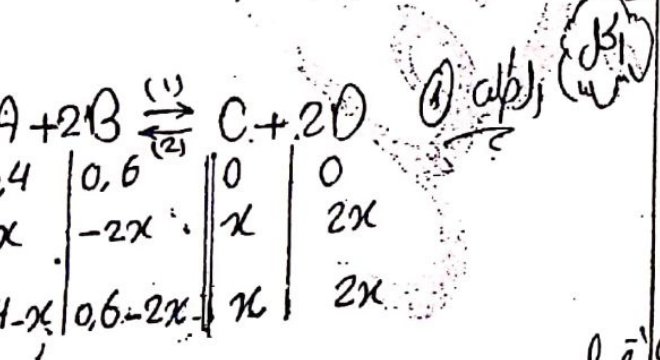 A + 2B (1) ⇌ (2) C + 2D ①
,4 | 0,6 || 0 | 0
x | -2x || x | 2x
4-x | 0,6-2x || x | 2x